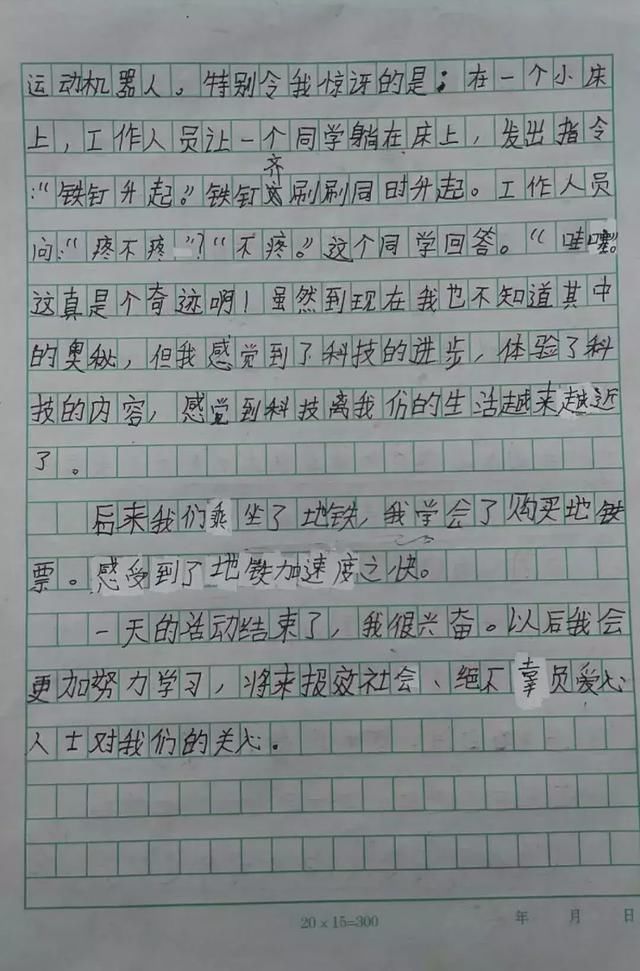 运动机器人。特别令我惊讶的是：在一个小床
上，工作人员让一个同学躺在床上，发出指令
：“铁钉升起。”铁钉齐刷刷同时升起。工作人员
问：“疼不疼”？“不疼。”这个同学回答。“哇噻。”
这真是个奇迹啊！虽然到现在我也不知道其中
的奥秘，但我感觉到了科技的进步，体验了科
技的内容，感觉到科技离我们的生活越来越近
了。
后来我们乘坐了地铁，我学会了购买地铁
票。感受到了地铁加速度之快。
一天的活动结束了，我很兴奋。以后我会
更加努力学习，将来报效社会、绝不辜负爱心
人士对我们的关心。
20×15=300 年 月 日